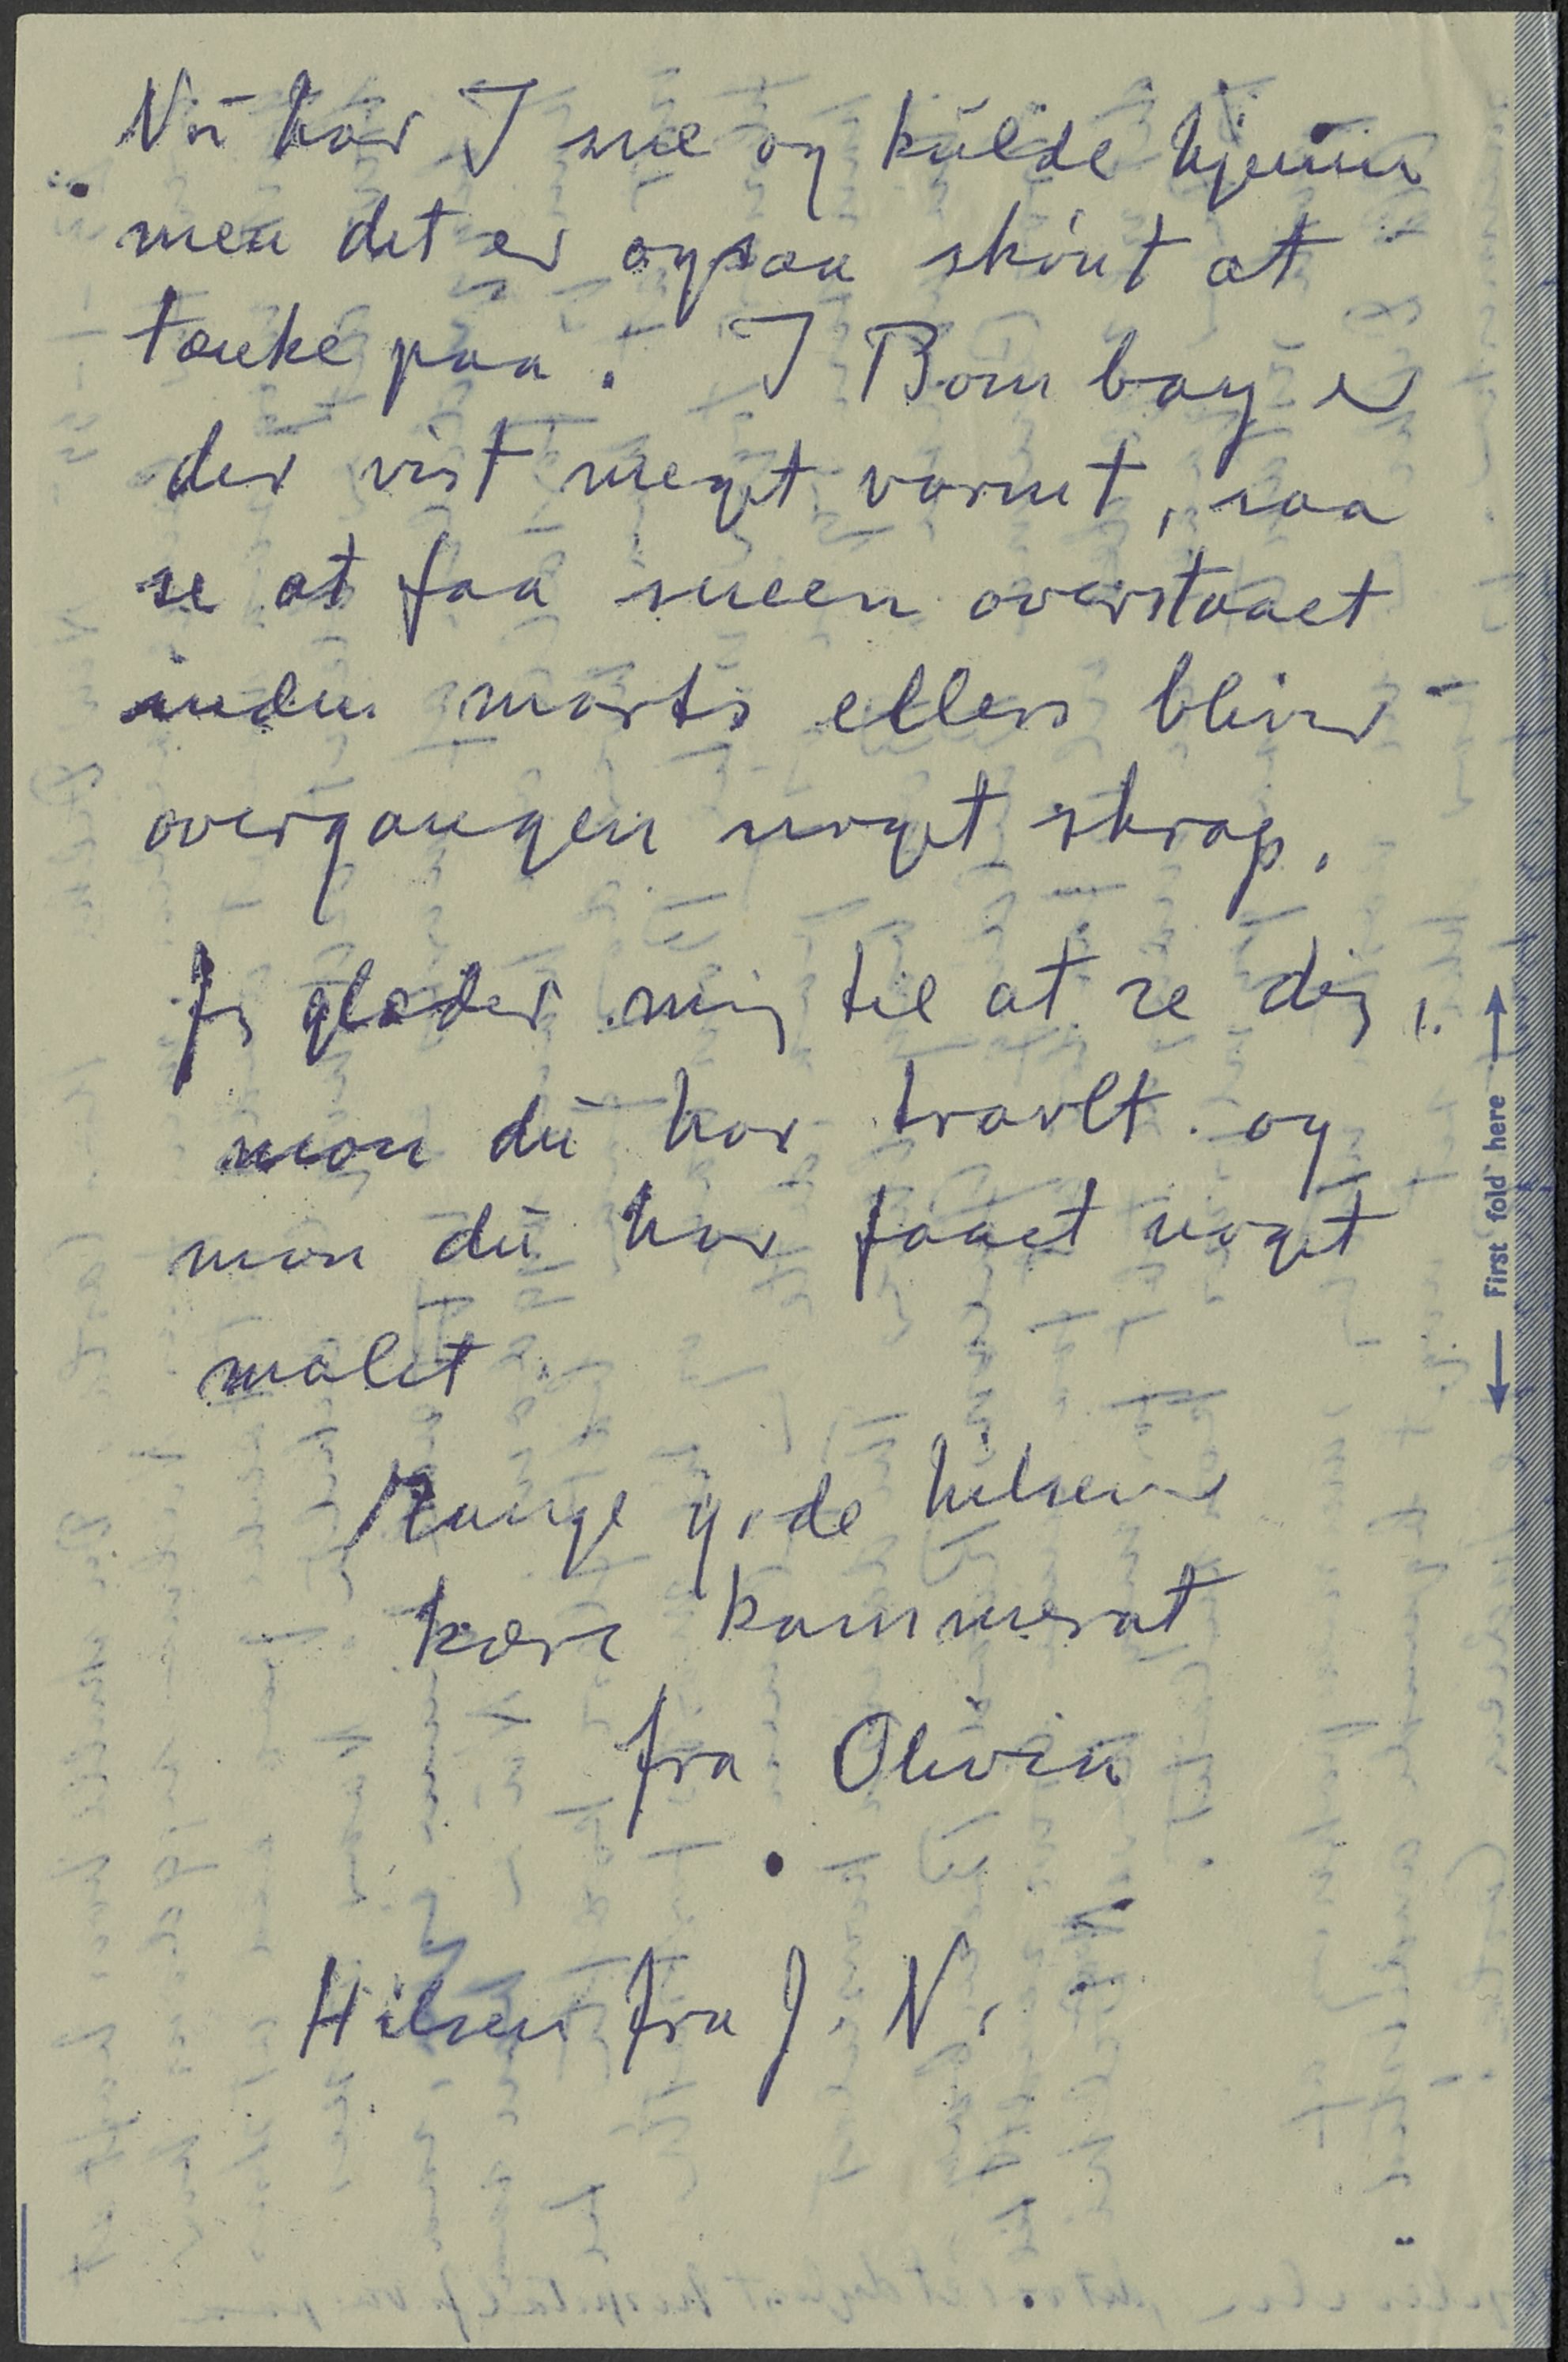 Nū har I sne og kūlde hjemme
men det er ogsaa skönt at
tænke paa. I Bombay er
der vist meget varmt, saa
se at faa sneen overstaaet
inden marts ellers bliver
overgangen noget skrap.
Jeg glæder mig til at se dig,
mon dū har travlt og
mon dū har faaet noget
malet
Mange gode hilsener
kære kammerat
fra Olivia
Hilsen fra J. N.
First fold here